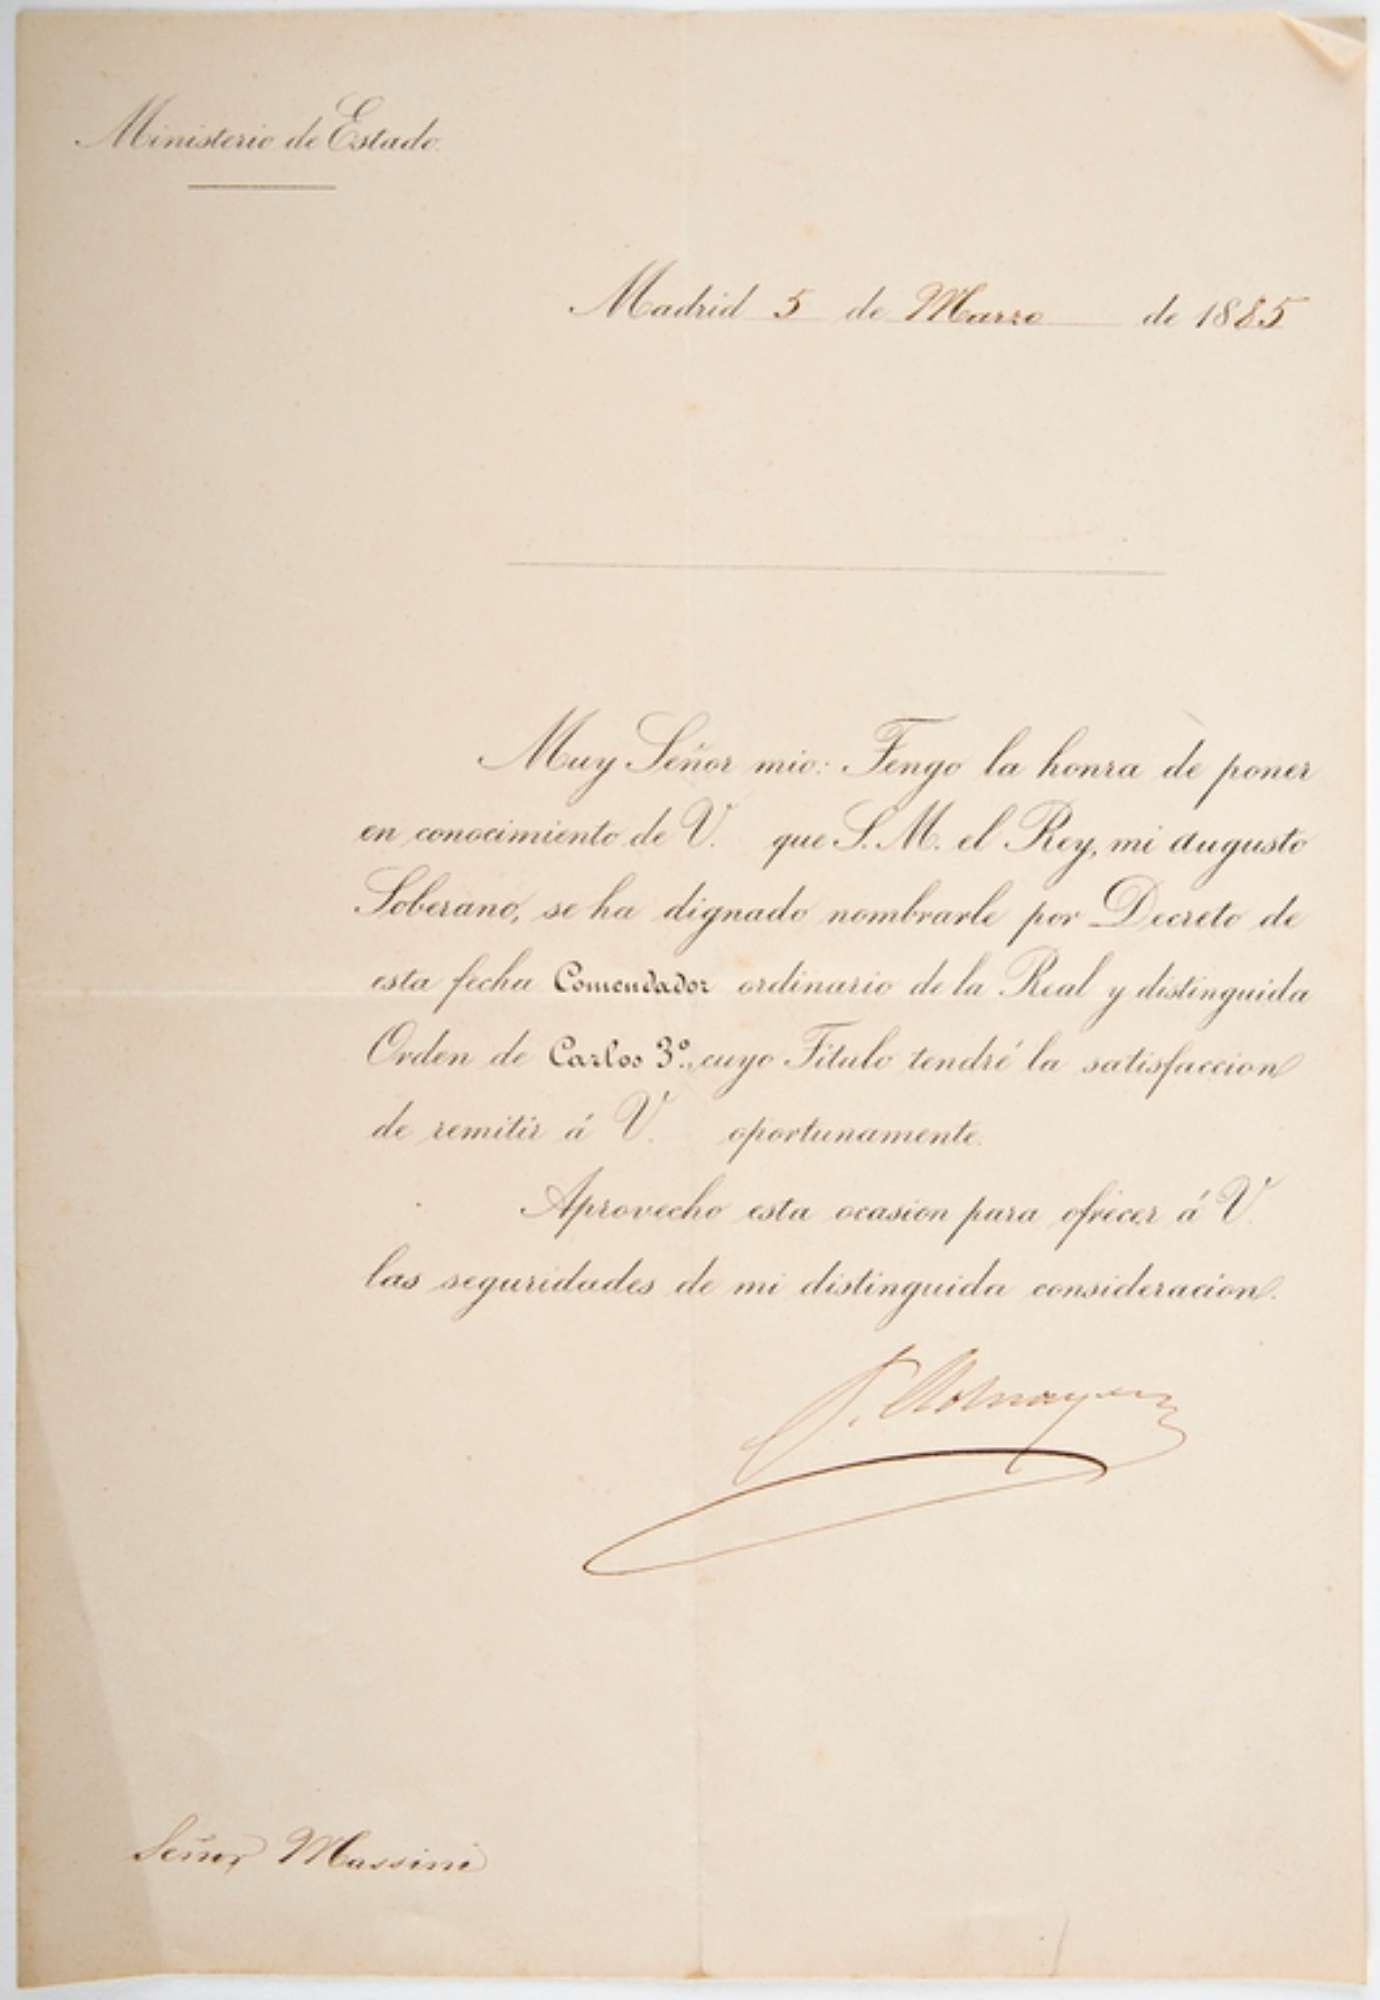 Ministerio de Estado.
Madrid 5 de Marzo de 1885
Muy Señor mio: Tengo la honra de poner
en conocimiento de V. que S. M. el Rey, mi augusto
Soberano, se ha dignado nombrarle por Decreto de
esta fecha Comendador ordinario de la Real y distinguida
Orden de Carlos 3º, cuyo Título tendré la satisfaccion
de remitir á V. oportunamente.
Aprovecho esta ocasion para ofrecer á V.
las seguridades de mi distinguida consideracion.
Señor Massini